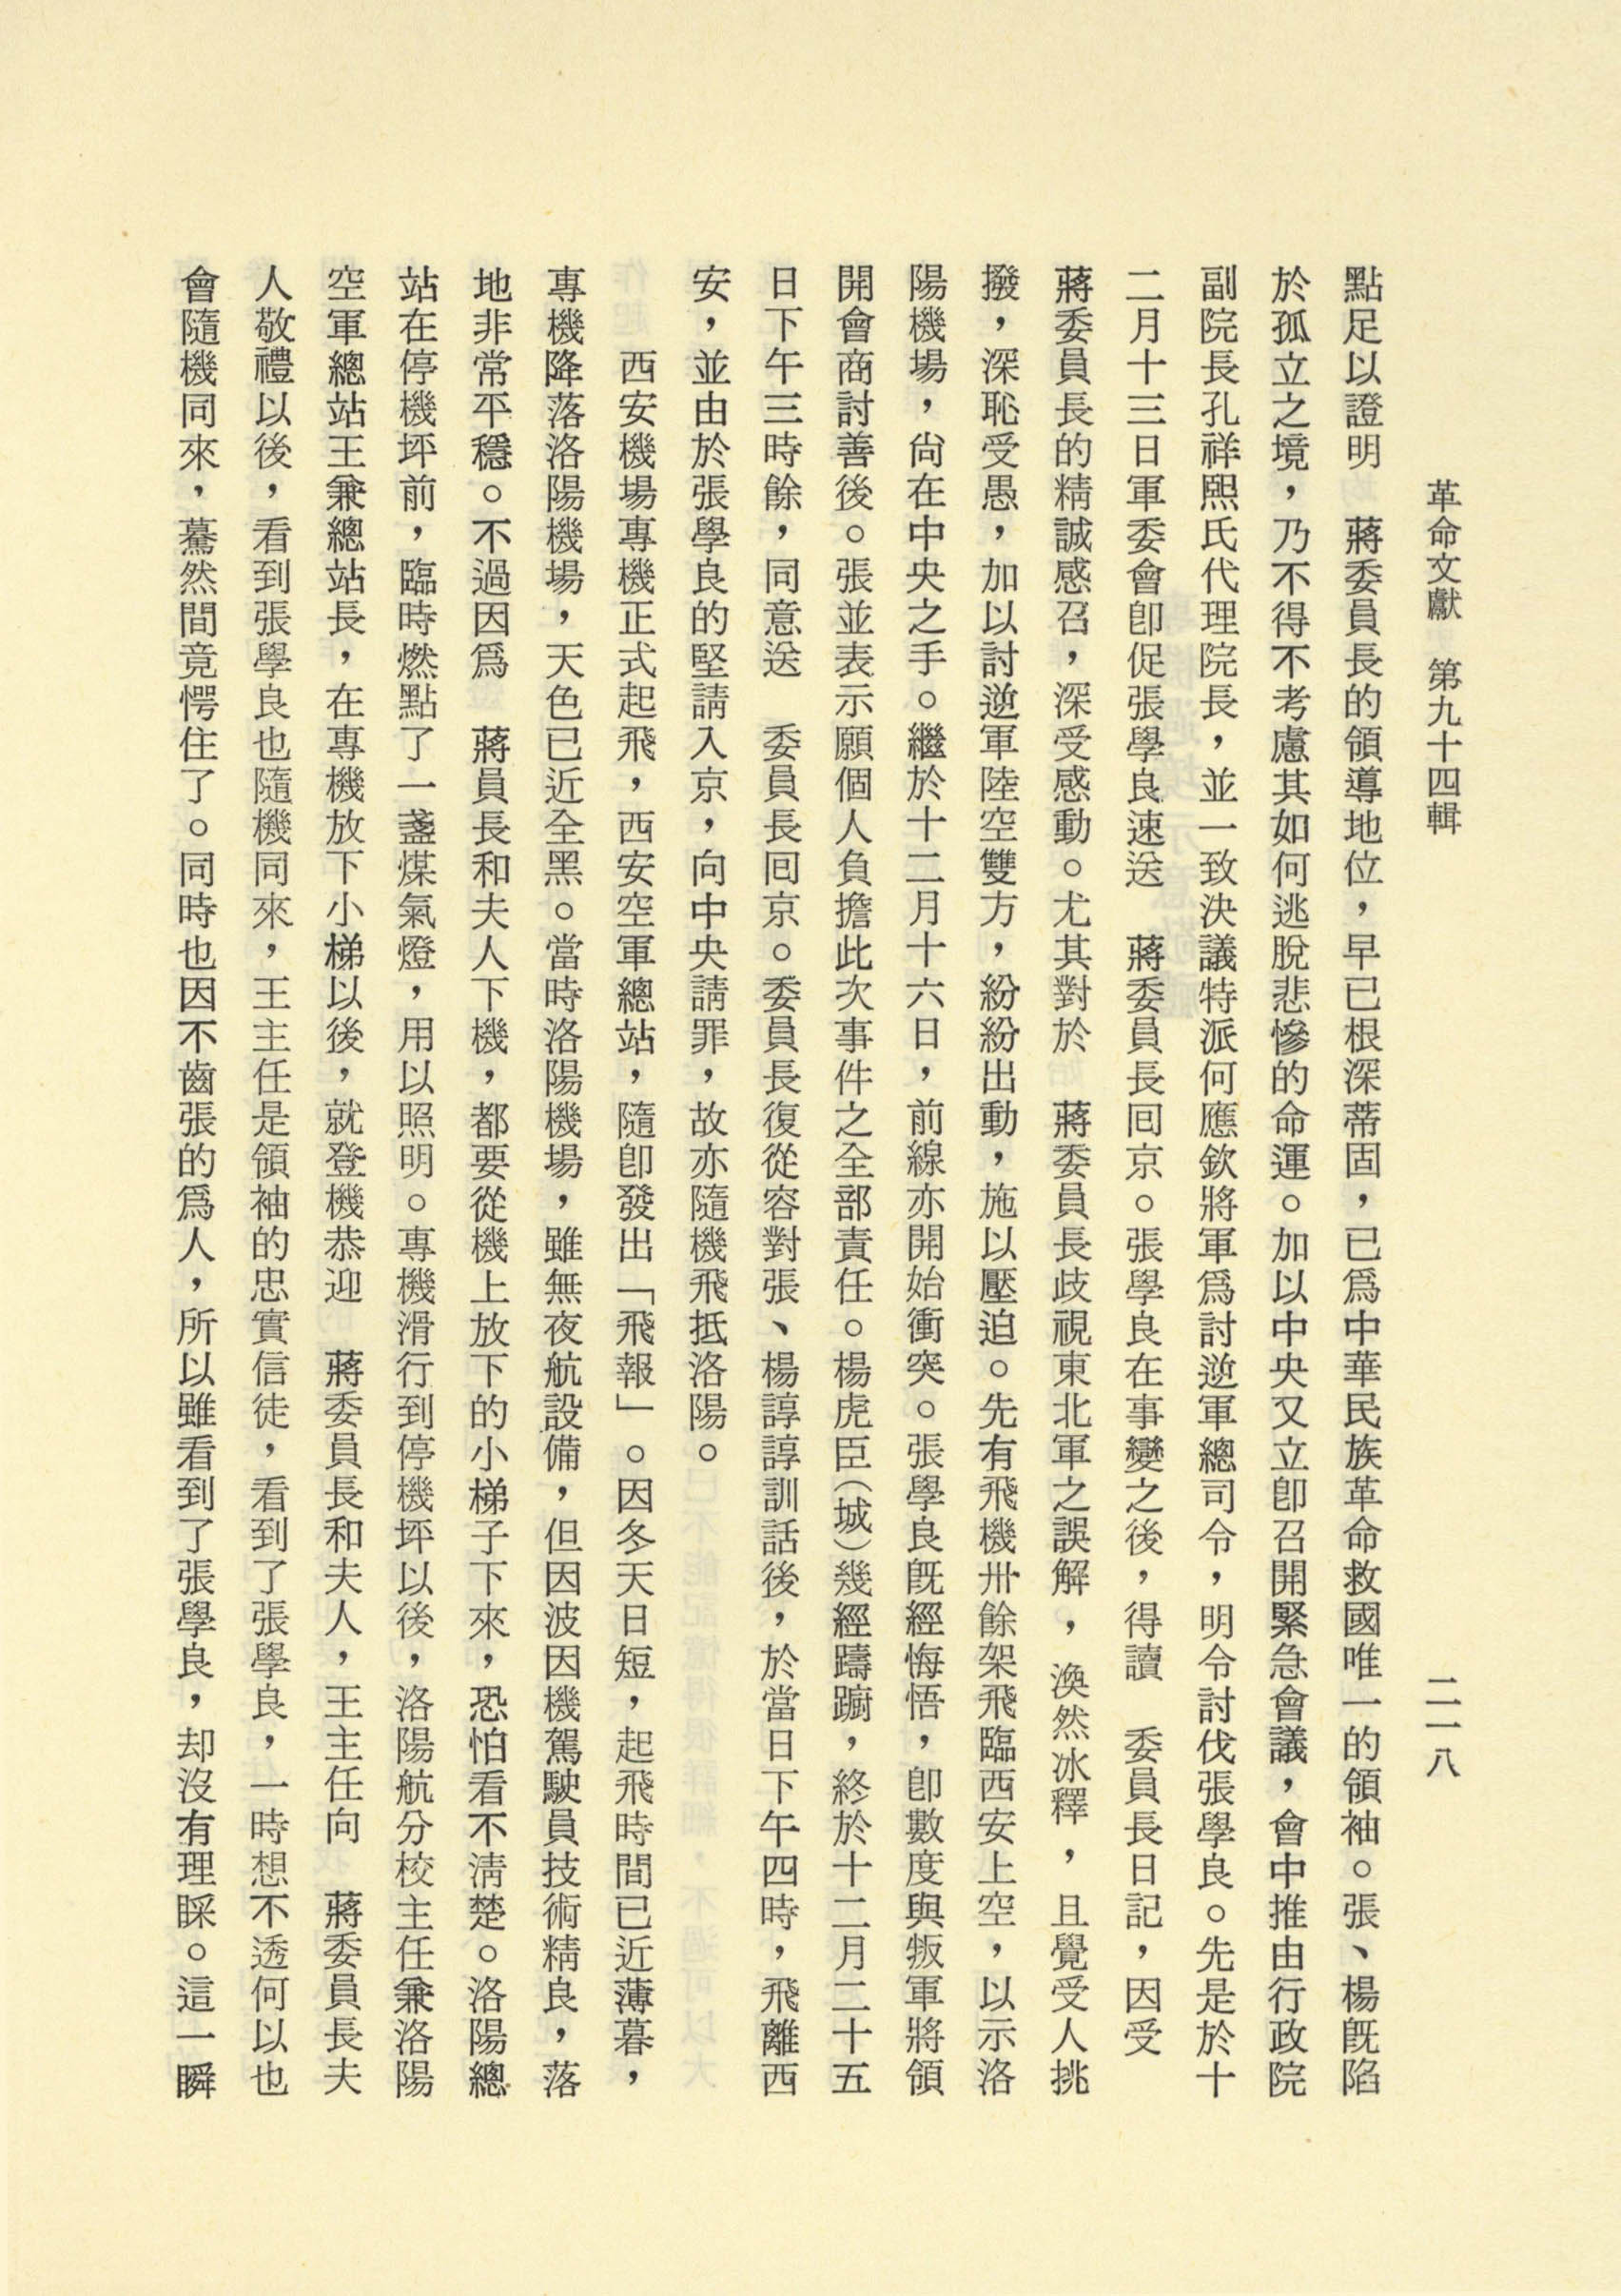 革命文獻　第九十四輯　二一八
點足以證明　蔣委員長的領導地位，早已根深蒂固，已爲中華民族革命救國唯一的領袖。張、楊旣陷
於孤立之境，乃不得不考慮其如何逃脫悲慘的命運。加以中央又立卽召開緊急會議，會中推由行政院
副院長孔祥熙氏代理院長，並一致決議特派何應欽將軍爲討逆軍總司令，明令討伐張學良。先是於十
二月十三日軍委會卽促張學良速送　蔣委員長囘京。張學良在事變之後，得讀　委員長日記，因受
蔣委員長的精誠感召，深受感動。尤其對於　蔣委員長歧視東北軍之誤解，渙然冰釋，且覺受人挑
撥，深恥受愚，加以討逆軍陸空雙方，紛紛出動，施以壓迫。先有飛機卅餘架飛臨西安上空，以示洛
陽機場，尙在中央之手。繼於十二月十六日，前線亦開始衝突。張學良旣經悔悟，卽數度與叛軍將領
開會商討善後。張並表示願個人負擔此次事件之全部責任。楊虎臣（城）幾經躊躕，終於十二月二十五
日下午三時餘，同意送　委員長囘京。委員長復從容對張、楊諄諄訓話後，於當日下午四時，飛離西
安，並由於張學良的堅請入京，向中央請罪，故亦隨機飛抵洛陽。
西安機場專機正式起飛，西安空軍總站，隨卽發出「飛報」。因冬天日短，起飛時間已近薄暮，
專機降落洛陽機場，天色已近全黑。當時洛陽機場，雖無夜航設備，但因波因機駕駛員技術精良，落
地非常平穩。不過因爲　蔣員長和夫人下機，都要從機上放下的小梯子下來，恐怕看不淸楚。洛陽總
站在停機坪前，臨時燃點了一盞煤氣燈，用以照明。專機滑行到停機坪以後，洛陽航分校主任兼洛陽
空軍總站王兼總站長，在專機放下小梯以後，就登機恭迎　蔣委員長和夫人，王主任向　蔣委員長夫
人敬禮以後，看到張學良也隨機同來，王主任是領袖的忠實信徒，看到了張學良，一時想不透何以也
會隨機同來，驀然間竟愕住了。同時也因不齒張的爲人，所以雖看到了張學良，却沒有理睬。這一瞬